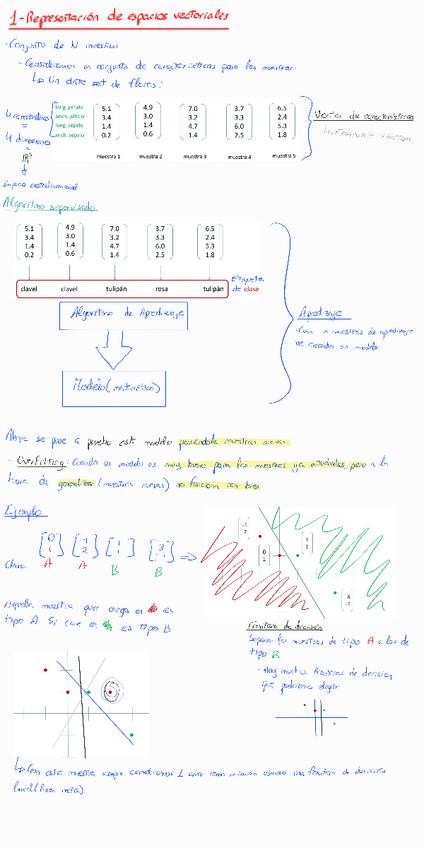 1-Representación de espacios vectoriales
·Conjunto de N muestras
- Consideramos un conjunto de características para las muestras
↳ Un dataset de flores:
4 características
=
4 dimensiones
ℝ⁴
long. pétalo
anch. pétalo
long. sépalo
anch. sépalo
5.1 4.9 7.0 3.7 6.5
3.4 3.0 3.2 3.3 2.4
1.4 1.4 4.7 6.0 5.3
0.2 0.6 1.4 2.5 1.8
muestra 1 muestra 2 muestra 3 muestra 4 muestra 5
Vector de características
Espacio
Algoritmo supervisado
5.1 4.9 7.0 3.7 6.5
3.4 3.0 3.2 3.3 2.4
1.4 1.4 4.7 6.0 5.3
0.2 0.6 1.4 2.5 1.8
clavel clavel tulipán rosa tulipán
etiquetas
de clase
Algoritmo de Aprendizaje
Modelo (matemático)
Aprendizaje
- Con muestras de aprendizaje
un modelo
Ahora se pasa a prueba este modelo pasándole muestras nuevas
- Overfitting: Cuando un modelo es muy bueno para las muestras ya pero a la
hora de generalizar (muestras nuevas) no funciona tan bien
Ejemplo
[0 1] [-1 2] [1 1] [3 -1] =>
Clase: A A B B
-1 2
0 1
1 1
3 -1
Aquella muestra que caiga en es
tipo A. Si cae en es tipo B
Frontera de decisión
Separa las muestras de tipo A a las de
tipo B
- Hay muchas fronteras de decisión
que podríamos elegir
↳ Con esta muestra 1 error como mínimo usando una frontera de decisión
(línea recta)